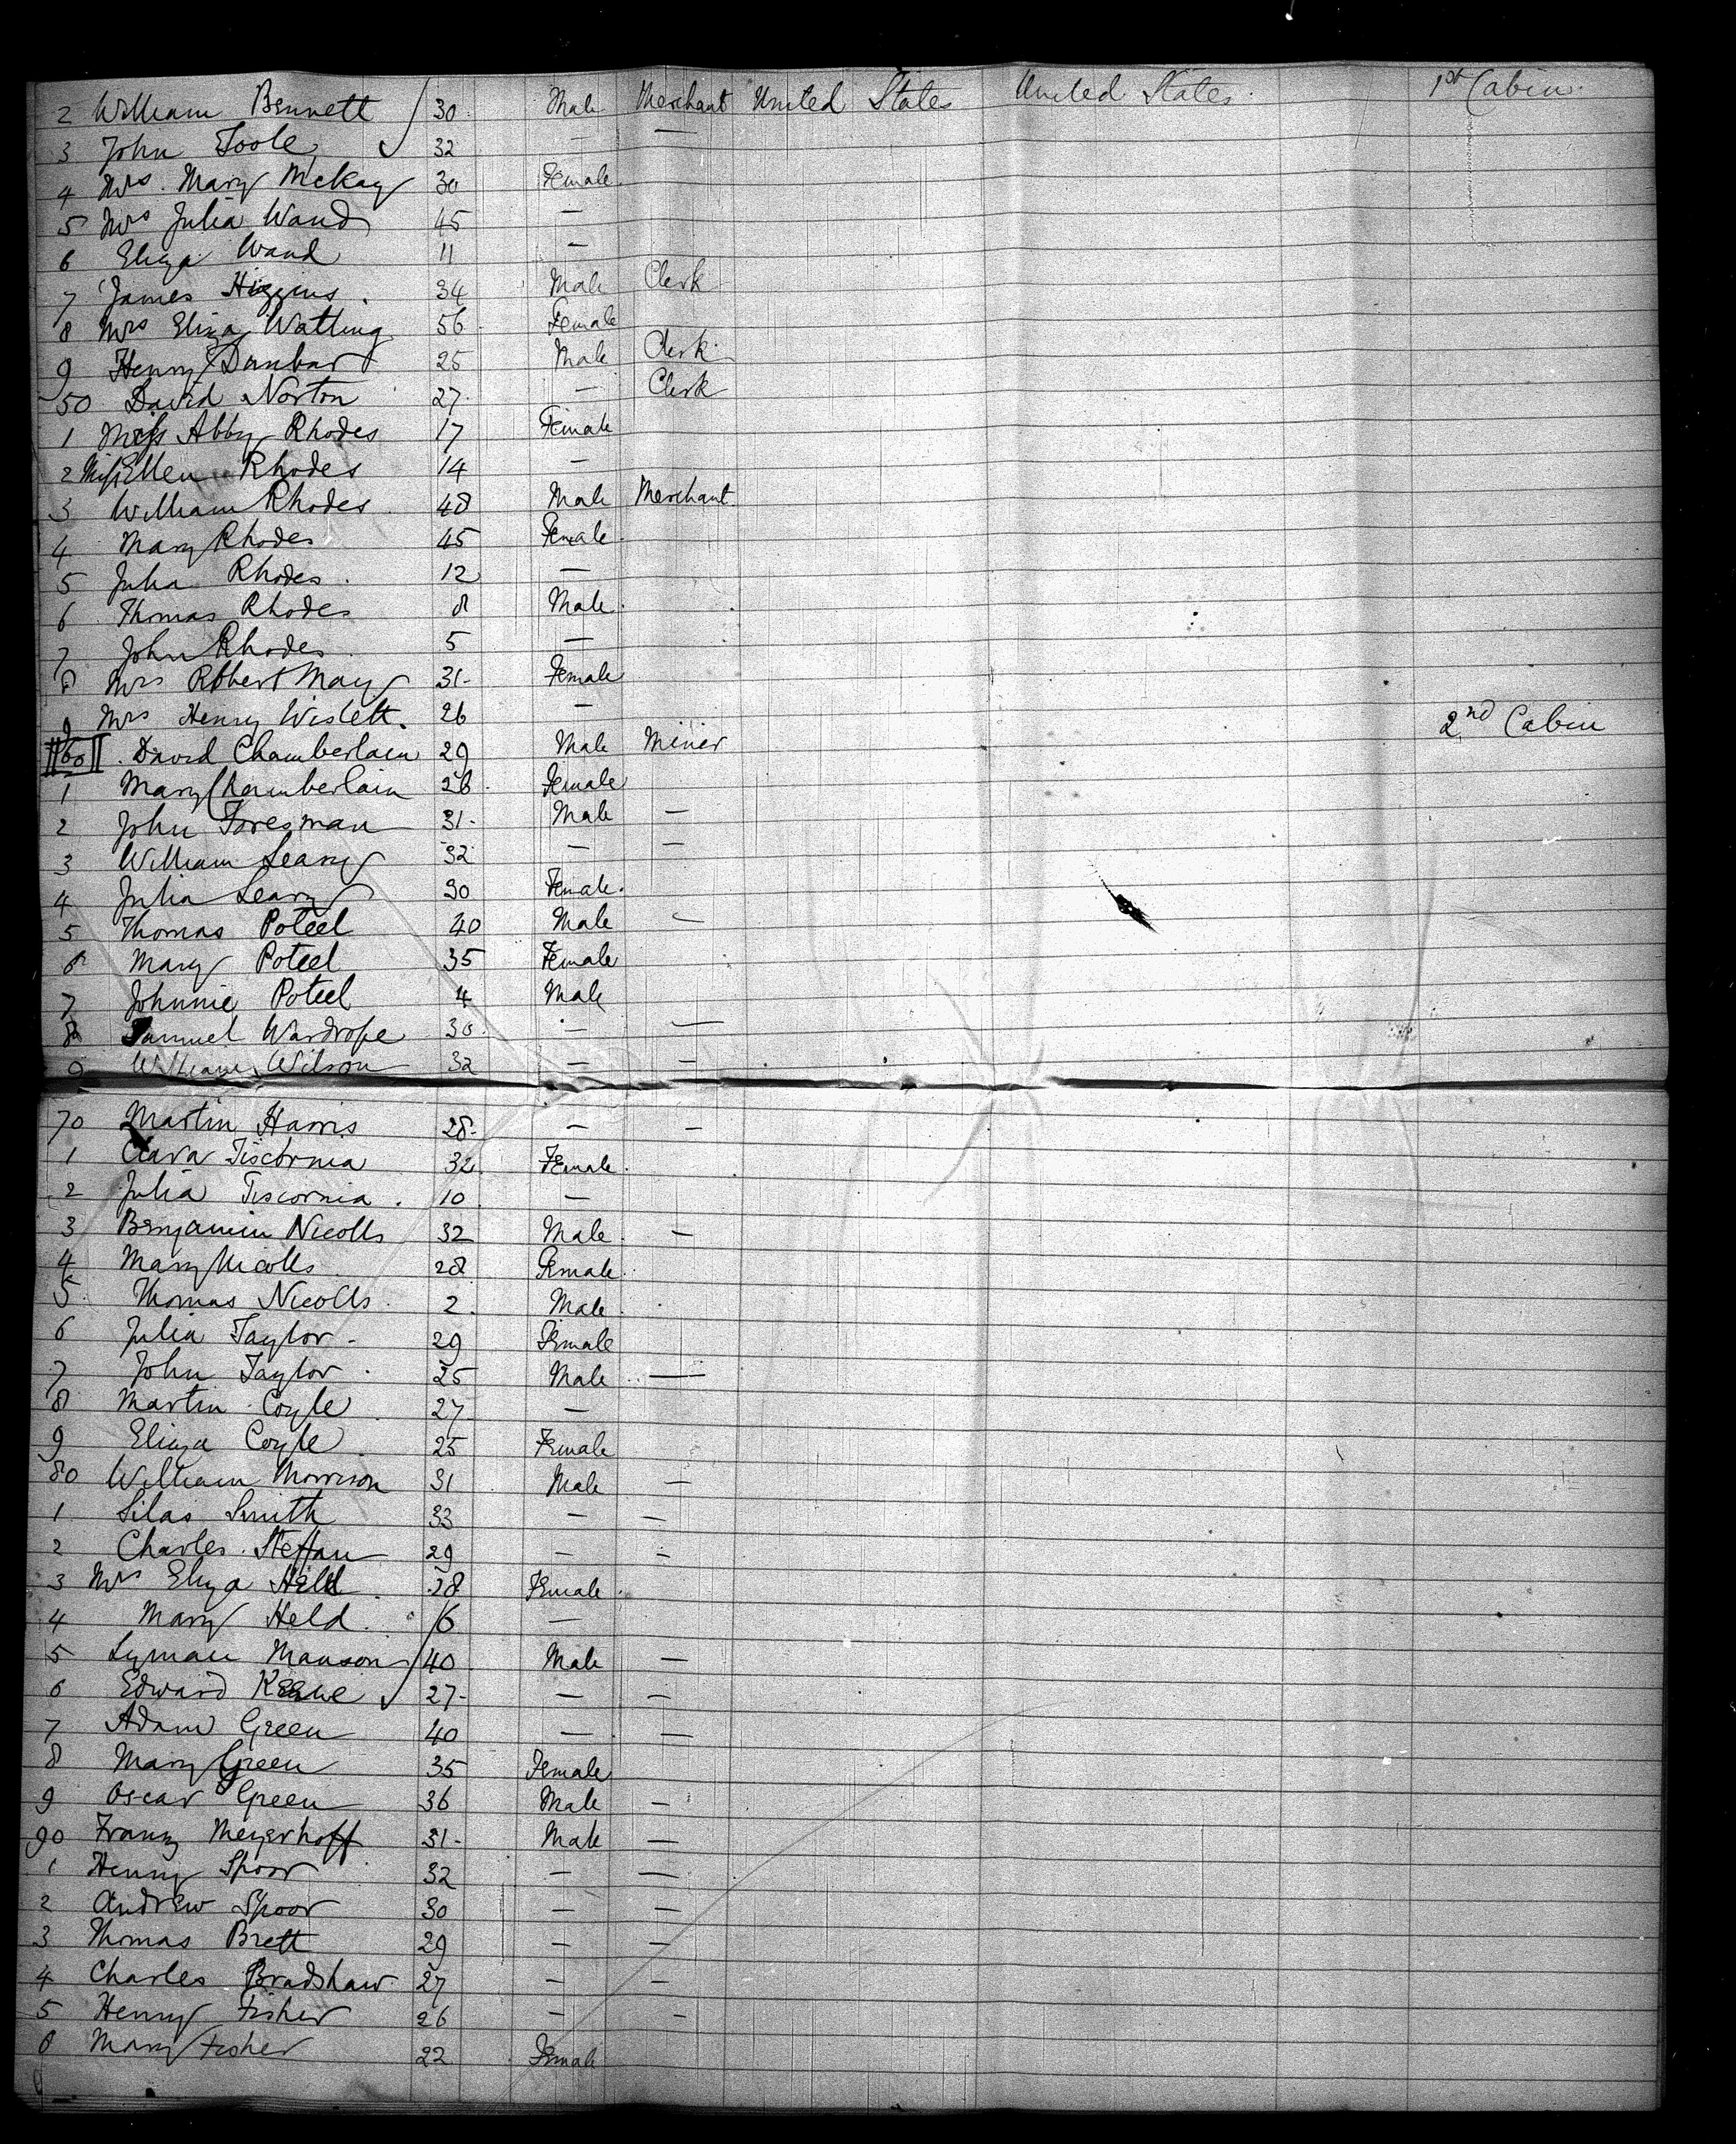 2 William Bennett 30 Male Merchant United States United States 1st Cabin
3 John Toole 32 — —
4 Mrs. Mary McKay 30 Female
5 Mrs Julia Wand 45 —
6 Eliza Wand 11 —
7 James Higgins 34 Male Clerk
8 Mrs Eliza Watling 56 Female
9 Henry Dunbar 25 Male Clerk
50 David Norton 27 — Clerk
1 Miss Abby Rhodes 17 Female
2 Miss Ellen Rhodes 14 —
3 William Rhodes 48 Male Merchant
4 Mary Rhodes 45 Female
5 Julia Rhodes 12 —
6 Thomas Rhodes 8 Male
7 John Rhodes 5 —
8 Mrs Robert May 31 Female
9 Mrs Henry Wislett 26 — 2nd Cabin
60 David Chamberlain 29 Male Miner
1 Mary Chamberlain 26 Female
2 John Foresman 31 Male —
3 William Leary 32 — —
4 Julia Leary 30 Female
5 Thomas Poteel 40 Male —
6 Mary Poteel 35 Female
7 Johnnie Poteel 4 Male
8 Samuel Wardrope 30 — —
9 William Wilson 32 — —
70 Martin Harris 28 — —
1 Clara Tiscornia 32 Female
2 Julia Tiscornia 10 —
3 Benjamin Nicolls 32 Male —
4 Mary Nicolls 28 Female
5 Thomas Nicolls 2 Male
6 Julia Taylor 29 Female
7 John Taylor 25 Male —
8 Martin Coyle 27 —
9 Eliza Coyle 25 Female
80 William Morrison 31 Male —
1 Silas Smith 33 — —
2 Charles Steffan 29 — —
3 Mrs Eliza Held 28 Female
4 Mary Held 6 —
5 Lyman Manson 40 Male —
6 Edward Keane 27 — —
7 Adam Green 40 — —
8 Mary Green 35 Female
9 Oscar Green 36 Male —
90 Franz Meyerhoff 31 Male —
1 Henry Spoor 32 — —
2 Andrew Spoor 30 — —
3 Thomas Brett 29 — —
4 Charles Bradshaw 27 — —
5 Henry Fisher 26 — —
6 Mary Fisher 22 Female